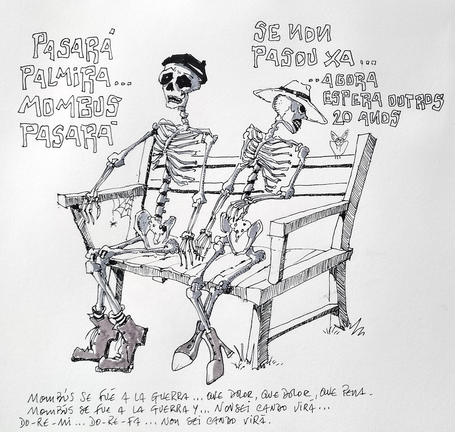 PASARÁ
PALMIRA...
MOMBUS
PASARÁ
SE NON
PASOU XA...
...AGORA
ESPERA OUTROS
20 ANOS
MOMBÚS SE FUÉ A LA GUERRA... QUE DOLOR, QUE DOLOR, QUE PENA.
MOMBÚS SE FUE A LA GUERRA Y... NON SEI CANDO VIRA...
DO-RE-MI... DO-RE-FA... NON SEI CANDO VIRÁ.